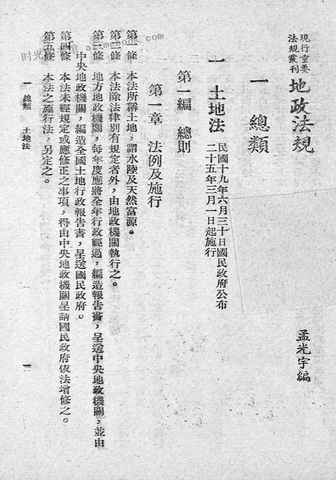 現行重要
法規叢刊
地政法規
孟光宇編
一 總類
一 土地法
民國十九年六月三十日國民政府公布
二十五年三月一日起施行
第一編 總則
第一章 法例及施行
第一條 本法所稱土地，謂水陸及天然富源。
第二條 本法除法律別有規定者外，由地政機關執行之。
第三條 地方地政機關，每年度應將全年行政經過，編造報告書，呈送中央地政機關，並由
中央地政機關，編造全國土地行政報告書，呈送國民政府。
第四條 本法未經規定或應修正之事項，得由中央地政機關呈請國民政府依法增修之。
第五條 本法之施行法，另定之。
一 總類 土地法
一